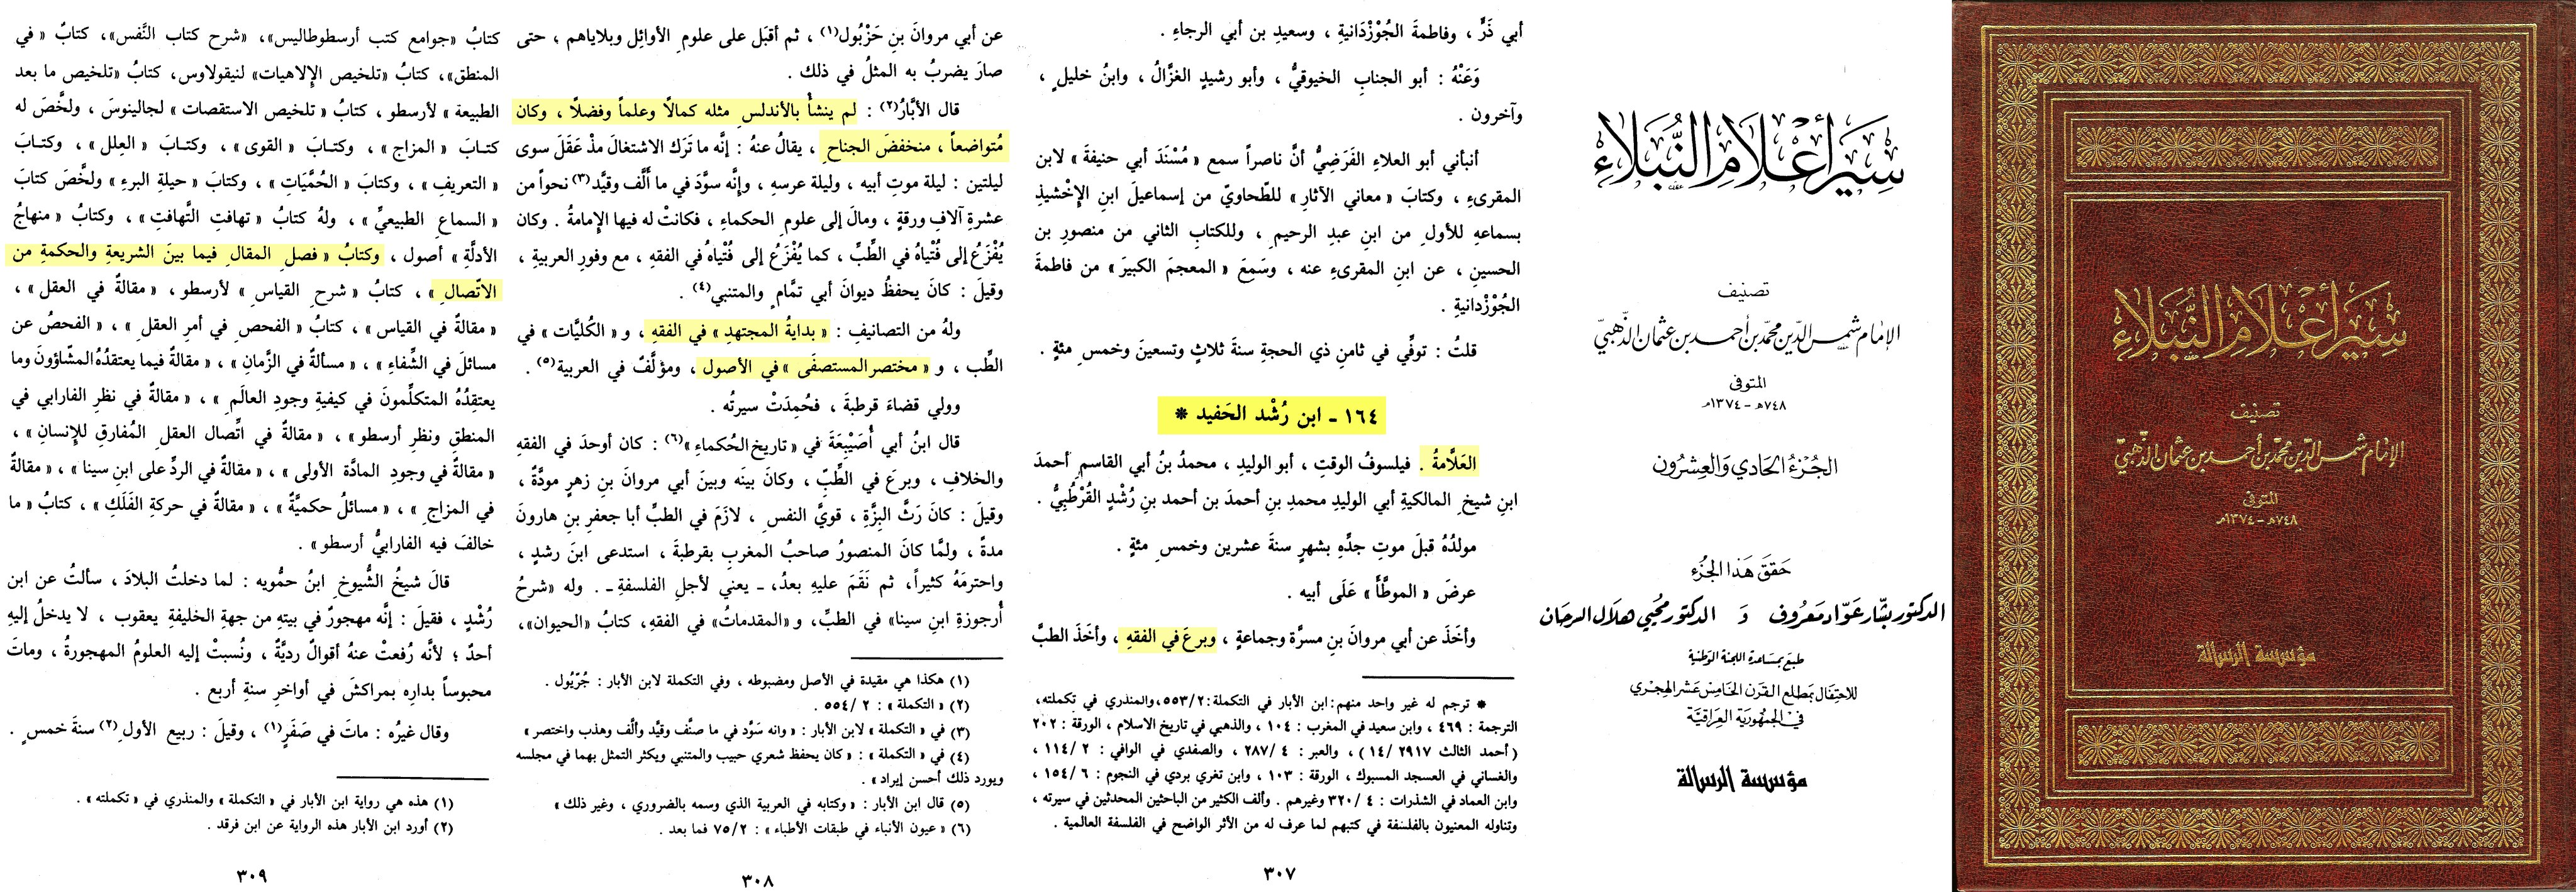 سِيَر أَعْلَامِ النُّبَلَاءِ
تصنيف
الإمام شمس الدّين محمّد بن أحمد بن عثمان الذّهبيّ
المتوفى
٧٤٨هـ - ١٣٧٤م
مؤسسة الرسالة
سِيَر أَعْلَامِ النُّبَلَاءِ
تصنيف
الإمام شمس الدّين محمّد بن أحمد بن عثمان الذّهبيّ
المتوفى
٧٤٨هـ - ١٣٧٤م
الجُزءُ الحَادي وَالعِشرُون
حَقّقَ هَذا الجُزء
الدكتور بشّار عَوّاد مَعرُوف وَ الدكتور محْيي هلال السرحَان
طبعَ بمسَاعدة اللجنة الوَطنية
للاحتفال بمَطلع القرن الخامِسْ عَشر الهجري
في الجمهورية العِراقيّة
مؤسسة الرسالة
أبي ذَرٍّ ، وفاطمةَ الجُوْزْدَانيةِ ، وسعيدِ بن أبي الرجاءِ .
وَعَنْهُ : أبو الجنابِ الخيوقيُّ ، وأبو رشيدٍ الغزَّالُ ، وابنُ خليلٍ ،
وآخرون .
أنبأني أبو العلاءِ الفَرَضِيُّ أنَّ ناصراً سمع « مُسْنَدَ أبي حنيفةَ » لابن
المقرىءِ ، وكتابَ « معاني الآثارِ » للطّحاويّ من إسماعيلَ ابنِ الإِخْشيذِ
بسماعهِ للأولِ من ابنِ عبدِ الرحيمِ ، وللكتابِ الثاني من منصورِ بن
الحسينِ ، عن ابنِ المقرىءِ عنه ، وسَمِعَ « المعجمَ الكبيرَ » من فاطمةَ
الجُوْزْدانيةِ .
قلتُ : توفِّي في ثامنِ ذي الحجةِ سنةَ ثلاثٍ وتسعينَ وخمسِ مئةٍ .
١٦٤ - ابن رُشْد الحَفيد *
العَلَّامةُ . فيلسوفُ الوقتِ ، أبو الوليدِ ، محمدُ بنُ أبي القاسمِ أحمدَ
ابنِ شيخِ المالكيةِ أبي الوليدِ محمدِ بنِ أحمدَ بن أحمد بنِ رُشْدٍ القُرْطُبِيُّ .
مولدُهُ قبلَ موتِ جدِّهِ بشهرٍ سنةَ عشرين وخمسِ مئةٍ .
عرضَ « الموطَّأَ » عَلَى أبيه .
وأخَذَ عن أبي مروانَ بنِ مسرَّةَ وجماعةٍ ، وبرعَ في الفقهِ ، وأخَذَ الطبَّ
* ترجم له غير واحد منهم: ابن الأبار في التكملة: ٥٥٣/٢، والمنذري في تكملته،
الترجمة : ٤٦٩ ، وابن سعيد في المغرب : ١٠٤ ، والذهبي في تاريخ الاسلام ، الورقة : ٢٠٢
( أحمد الثالث ٢٩١٧ /١٤ ) ، والعبر : ٤ /٢٨٧ ، والصفدي في الوافي : ٢ /١١٤ ،
والغساني في العسجد المسبوك ، الورقة : ١٠٣ ، وابن تغري بردي في النجوم : ٦ /١٥٤ ،
وابن العماد في الشذرات : ٤ /٣٢٠ وغيرهم . وألف الكثير من الباحثين المحدثين في سيرته ،
وتناوله المعنيون بالفلسفة في كتبهم لما عرف له من الأثر الواضح في الفلسفة العالمية .
٣٠٧
عن أبي مروانَ بنِ حَزْبُول(١) ، ثم أقبَل على علومِ الأوائِل وبلاياهم ، حتى
صارَ يضربُ به المثلُ في ذلك .
قال الأبَّارُ(٢) : لم ينشأْ بالأندلسِ مثله كمالًا وعلماً وفضلًا ، وكان
مُتواضعاً ، منخفضَ الجناحِ ، يقالُ عنهُ : إنَّه ما تَرَك الاشتغالَ مذْ عَقَلَ سوى
ليلتين : ليلة موتِ أبيه ، وليلة عرسهِ ، وإنَّه سوَّدَ في ما ألَّف وقيَّد(٣) نحواً من
عشرةِ آلافِ ورقةٍ ، ومالَ إلى علومِ الحكماءِ ، فكانتْ له فيها الإمامةُ . وكان
يُفْزَعُ إلى فُتْياهُ في الطِّبِّ ، كما يُفْزَعُ إلى فُتْياهُ في الفقهِ ، مع وفورِ العربيةِ ،
وقيلَ : كانَ يحفظُ ديوانَ أبي تمَّامٍ والمتنبي(٤) .
ولهُ من التصانيفِ : « بدايةُ المجتهدِ » في الفقهِ ، و « الكُليَّات » في
الطِّب ، و « مختصر المستصفَى » في الأصول ، ومؤلَّفٌ في العربية(٥) .
وولي قضاءَ قرطبةَ ، فحُمِدَتْ سيرتُه .
قال ابنُ أبي أُصَيْبِعَةَ في « تاريخ الحُكماءِ »(٦) : كان أوحدَ في الفقهِ
والخلافِ ، وبرعَ في الطِّبِّ ، وكانَ بينَه وبينَ أبي مروانَ بنِ زهرٍ مودَّةٌ ،
وقيلَ : كانَ رَثَّ البِزَّةِ ، قويَّ النفسِ ، لازَمَ في الطبِّ أبا جعفرِ بنِ هارونَ
مدةً ، ولمَّا كانَ المنصورُ صاحبُ المغربِ بقرطبةَ ، استدعى ابنَ رشدٍ ،
واحترمَهُ كثيراً، ثم نَقَمَ عليهِ بعدُ، ـ يعني لأجلِ الفلسفةِ ـ . وله «شرحُ
أُرجوزةِ ابنِ سينا» في الطبِّ، و «المقدماتُ» في الفقهِ، كتابُ «الحيوان»،
(١) هكذا هي مقيدة في الأصل ومضبوطه ، وفي التكملة لابن الأبار : جُرّيُول .
(٢) « التكملة » : ٢ /٥٥٤ .
(٣) في « التكملة » لابن الأبار : « وانه سَوَّد في ما صنَّف وقيَّد وألَّف وهذب واختصر »
(٤) في « التكملة » : « كان يحفظ شعري حبيب والمتنبي ويكثر التمثل بهما في مجلسه
ويورد ذلك أحسن إيراد » .
(٥) قال ابن الأبار : « وكتابه في العربية الذي وسمه بالضروري ، وغير ذلك »
(٦) « عيون الأنباء في طبقات الأطباء » : ٧٥/٢ فما بعد .
٣٠٨
كتابُ «جوامع كتب أرسطوطاليس»، «شرح كتاب النَّفس»، كتابٌ « في
المنطق»، كتابُ «تلخيص الإلاهيات» لنيقولاوس، كتابُ «تلخيص ما بعد
الطبيعة » لأرسطو ، كتابُ « تلخيص الاستقصات » لجالينوسَ ، ولخَّصَ له
كتـابَ « المزاج » ، وكتـابَ « القوى » ، وكتـابَ « العِلل » ، وكتـابَ
« التعريفِ » ، وكتابَ « الحُمَّيَاتِ » ، وكتابَ « حيلةِ البرءِ » ولخَّصَ كتابَ
« السماعِ الطبيعيِّ » ، ولهُ كتابُ « تهافتِ التَّهافتِ » ، وكتابُ « منهاجُ
الأدلَّةِ » أصول ، وكتابُ « فصلِ المقالِ فيما بينَ الشريعةِ والحكمةِ من
الاتّصالِ » ، كتابُ « شرحِ القياسِ » لأرسطو ، « مقالةٌ في العقل » ،
« مقالةٌ في القياس » ، كتابُ « الفحصِ في أمرِ العقلِ » ، « الفحصُ عن
مسائلَ في الشِّفاءِ » ، « مسألةٌ في الزَّمانِ » ، « مقالةٌ فيما يعتقدُهُ المشّاؤونَ وما
يعتقِدُهُ المتكلِّمونَ في كيفيةِ وجودِ العالَمِ » ، « مقالةٌ في نظرِ الفارابي في
المنطقِ ونظرِ أرسطو » ، « مقالةٌ في اتِّصال العقلِ المُفارقِ للإنسانِ » ،
« مقالةٌ في وجودِ المادَّة الأولى » ، « مقالةٌ في الردِّ على ابنِ سينا » ، « مقالةٌ
في المزاجِ » ، « مسائلُ حكميَّةٌ » ، « مقالةٌ في حركةِ الفَلَكِ » ، كتابُ « ما
خالفَ فيه الفارابيُّ أرسطو » .
قالَ شيخُ الشُّيوخِ ابنُ حمُّويه : لما دخلتُ البلادَ ، سألتُ عن ابن
رُشْدٍ ، فقيلَ : إنَّه مهجورٌ في بيتهِ من جهةِ الخليفةِ يعقوب ، لا يدخلُ إليهِ
أحدٌ ؛ لأنَّه رُفعتْ عنهُ أقوالٌ رديَّةٌ ، ونُسبتْ إليه العلومُ المهجورةُ ، وماتَ
محبوساً بدارِه بمراكشَ في أواخرِ سنةِ أربع .
وقال غيرُه : ماتَ في صَفَرٍ(١) ، وقيلَ : ربيع الأولِ(٢) سنةَ خمسٍ .
(١) هذه هي رواية ابن الأبار في « التكملة » والمنذري في « تكملته » .
(٢) أورد ابن الأبار هذه الرواية عن ابن فرقد .
٣٠٩